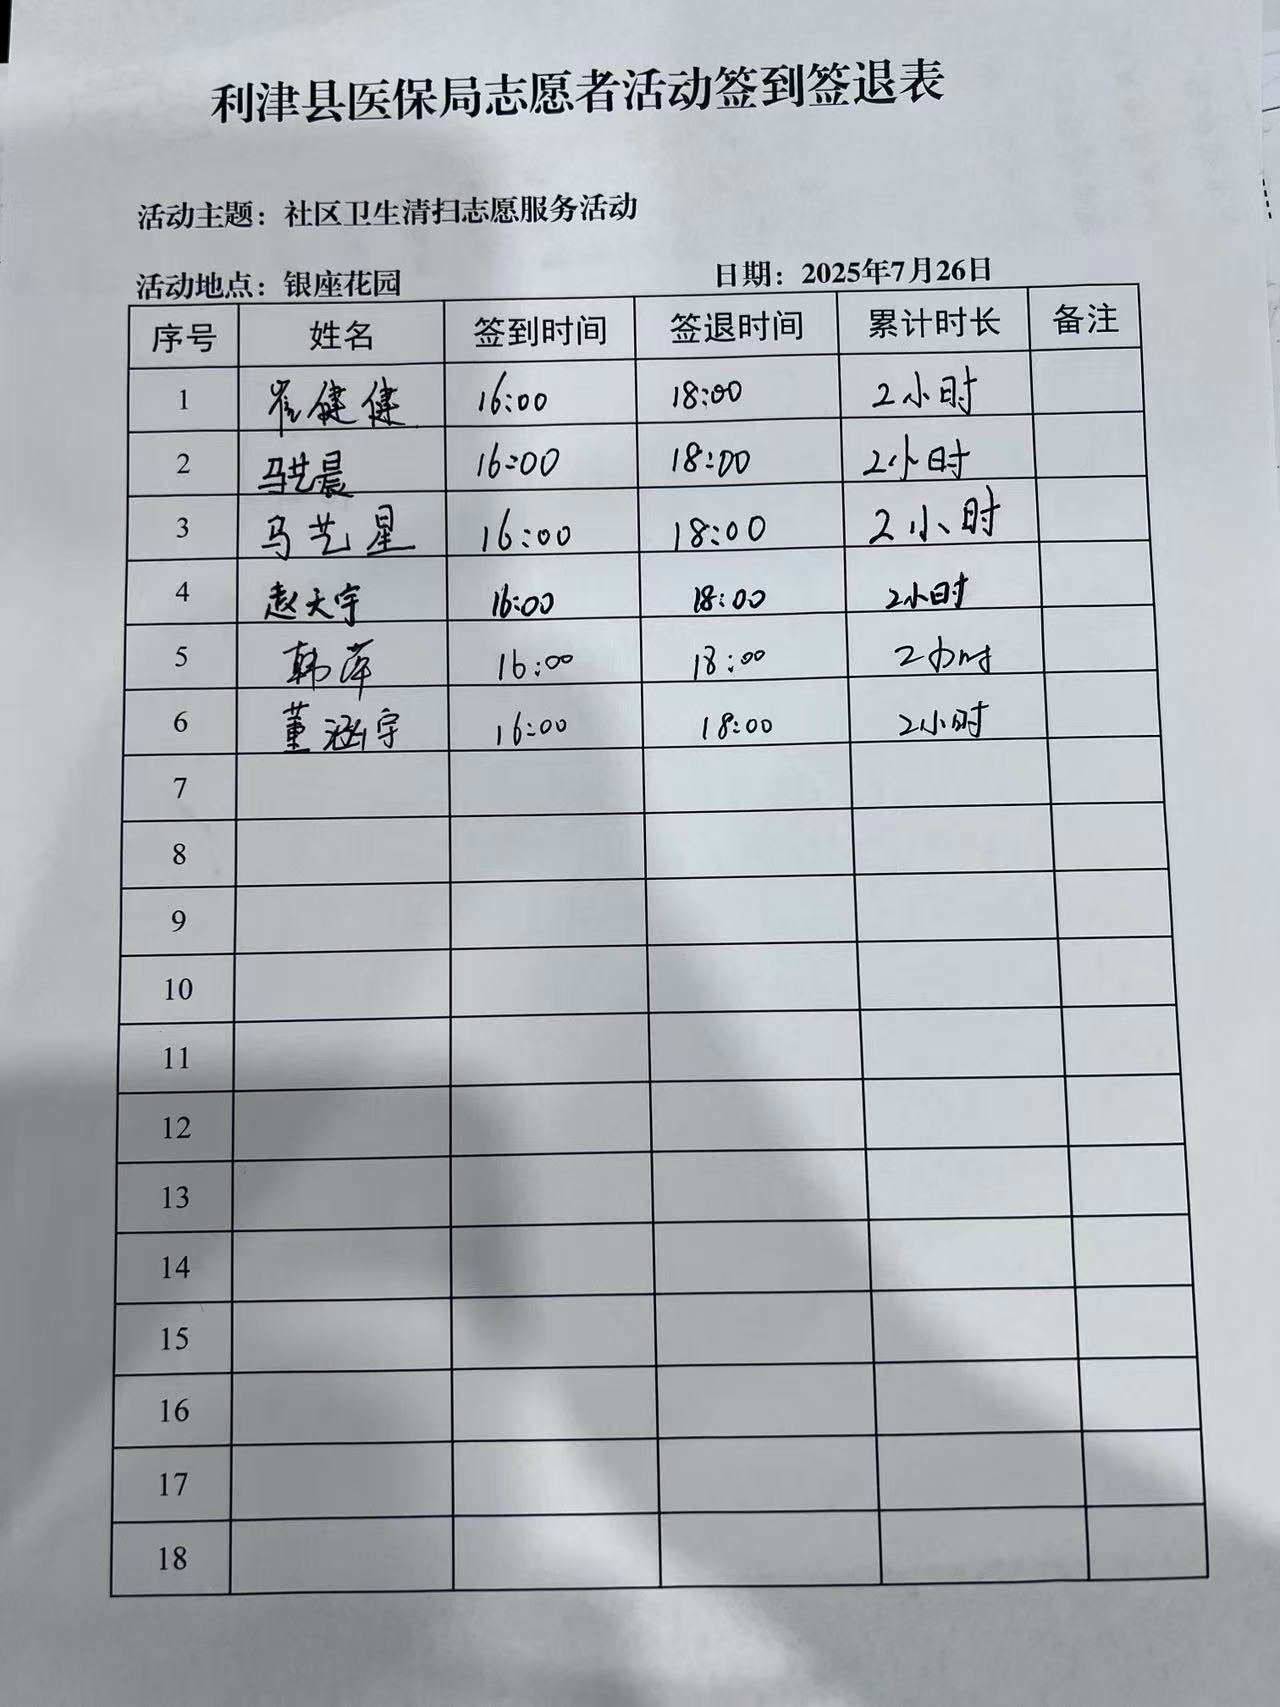 利津县医保局志愿者活动签到签退表
活动主题：社区卫生清扫志愿服务活动
活动地点：银座花园 日期：2025年7月26日
序号 姓名 签到时间 签退时间 累计时长 备注
1 崔健健 16:00 18:00 2小时
2 马艺晨 16:00 18:00 2小时
3 马艺星 16:00 18:00 2小时
4 赵天宇 16:00 18:00 2小时
5 韩萍 16:00 18:00 2小时
6 董涵宇 16:00 18:00 2小时
7
8
9
10
11
12
13
14
15
16
17
18